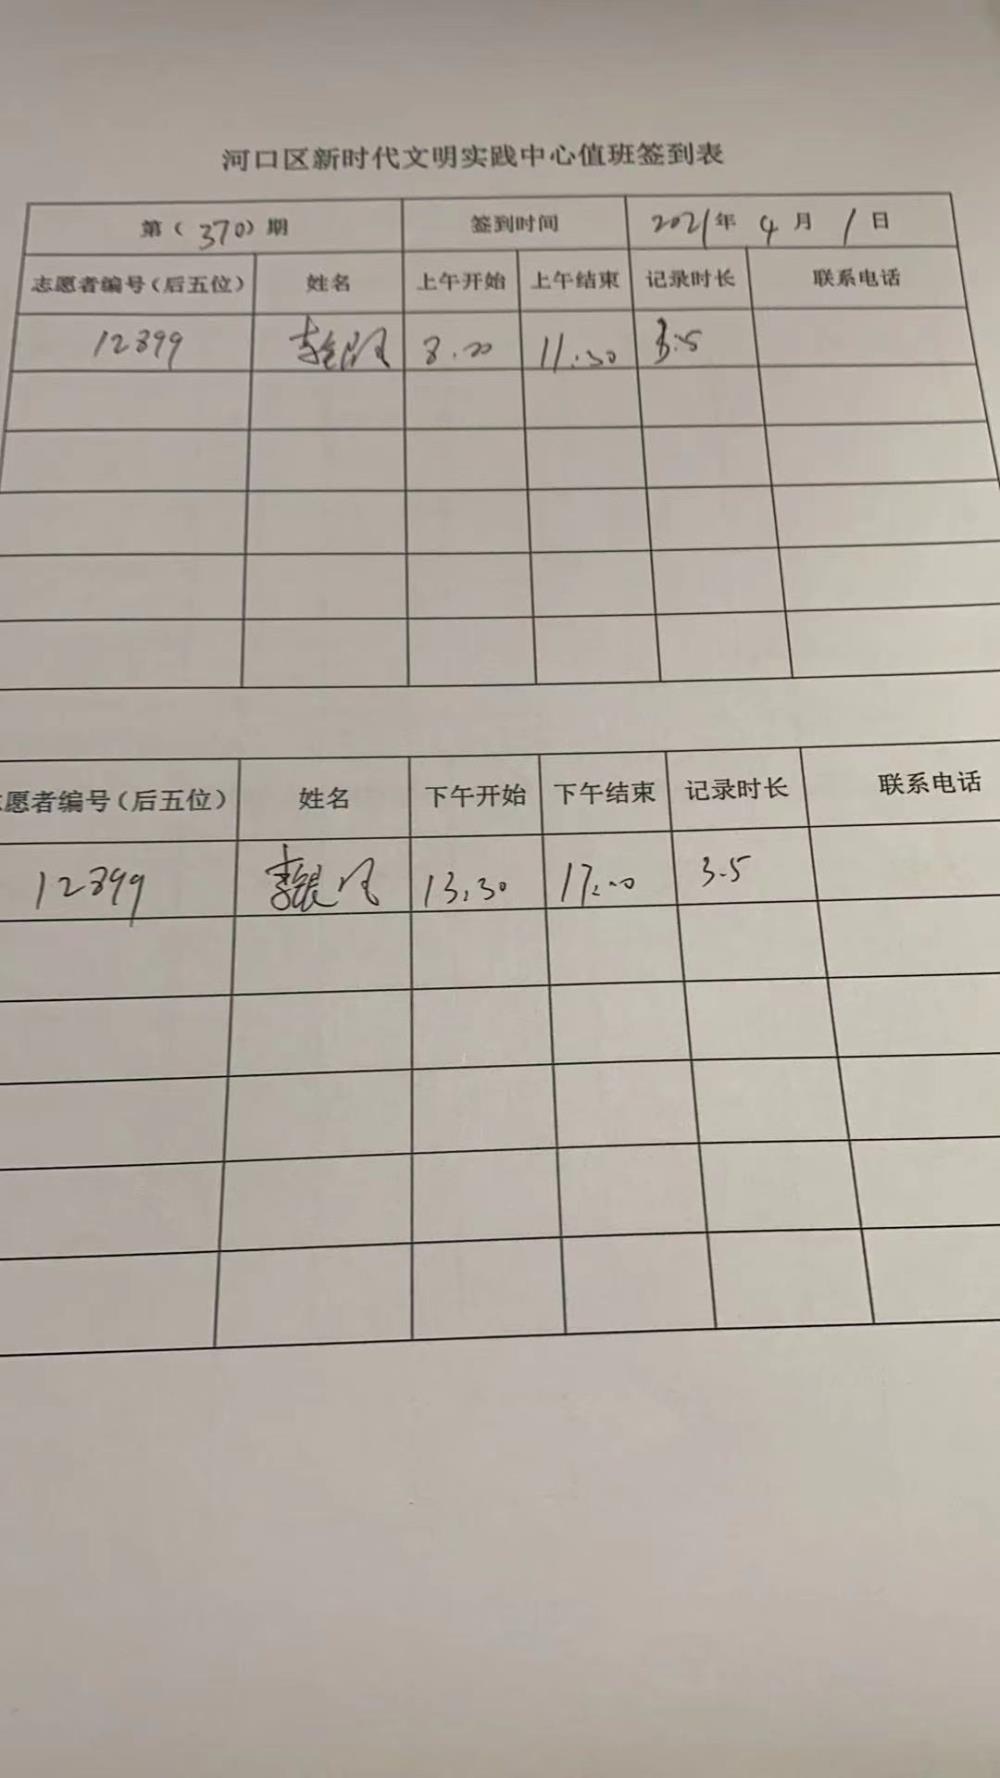 河口区新时代文明实践中心值班签到表
第（370）期 签到时间 2021年4月1日
志愿者编号（后五位） 姓名 上午开始 上午结束 记录时长 联系电话
12899 8.00 11.30 3.5
志愿者编号（后五位） 姓名 下午开始 下午结束 记录时长 联系电话
12899 13.30 17.00 3.5